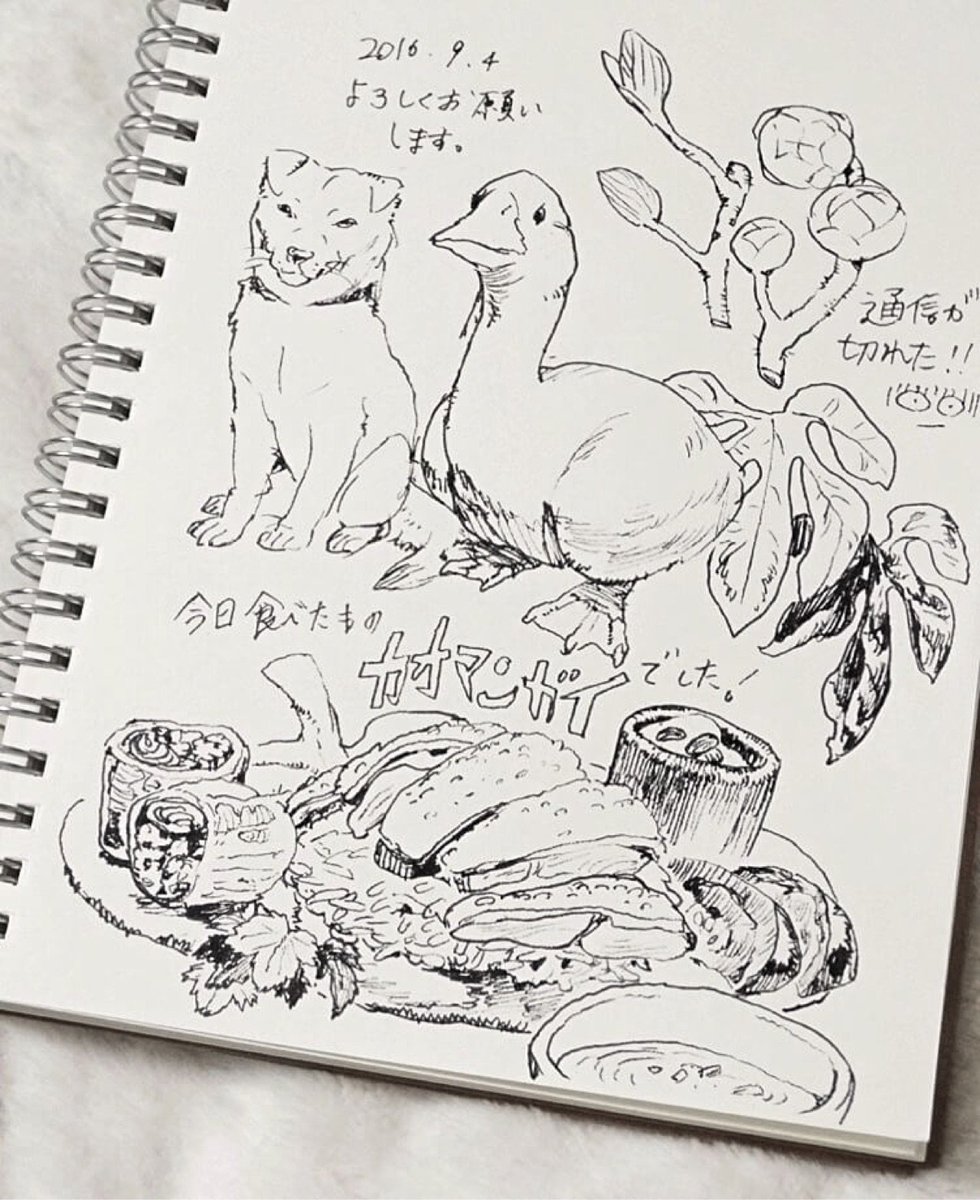 2016.9.4
よろしくお願い
します。
通信が
切れた!!
今日食べたもの
カオマンガイでした!